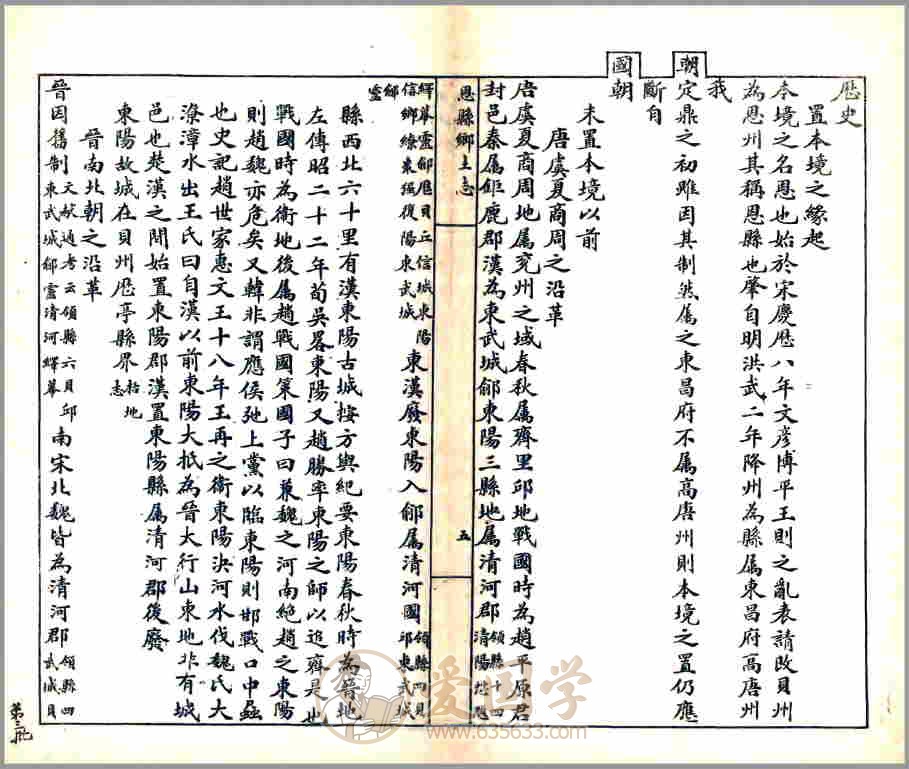 歷史
置本境之緣起
本境之名恩也始於宋慶歷八年文彥博平王則之亂表請改貝州
為恩州其稱恩縣也肇自明洪武二年降州為縣屬東昌府高唐州
我
朝定鼎之初雖因其制然屬之東昌府不屬高唐州則本境之置仍應
斷自
國朝
未置本境以前
唐虞夏商周之沿革
唐虞夏商周地屬兗州之域春秋屬齊里邱地戰國時為趙平原君
封邑秦屬鉅鹿郡漢為東武城鄃東陽三縣地屬清河郡領縣十四清陽
恩縣鄉土志
五
繹幕靈鄃厝貝丘信城東陽
信鄉繚棗强復陽東武城
鄃靈
東漢廢東陽入鄃屬清河國領縣四貝邱東武城
縣西北六十里有漢東陽古城按方輿紀要東陽春秋時為晉地
左傳昭二十二年荀吳畧東陽又趙勝率東陽之師以追齊是也
戰國時為衛地後屬趙戰國策國子曰兼魏之河南絶趙之東陽
則趙魏亦危矣又韓非謂應侯弛上黨以臨東陽則邯戰口中虱
也史記趙世家惠文王十八年王再之衛東陽決河水伐魏氏大
潦漳水出王氏曰自漢以前東陽大抵為晉大行山東地非有城
邑也楚漢之間始置東陽郡漢置東陽縣屬清河郡後廢
東陽故城在貝州歷亭縣界括地志
晉南北朝之沿革
晉因舊制文獻通考云領縣六貝邱東武城鄃靈清河繹幕南宋北魏皆為清河郡領縣四武城貝
第三冊
爱国学
www.635633.com